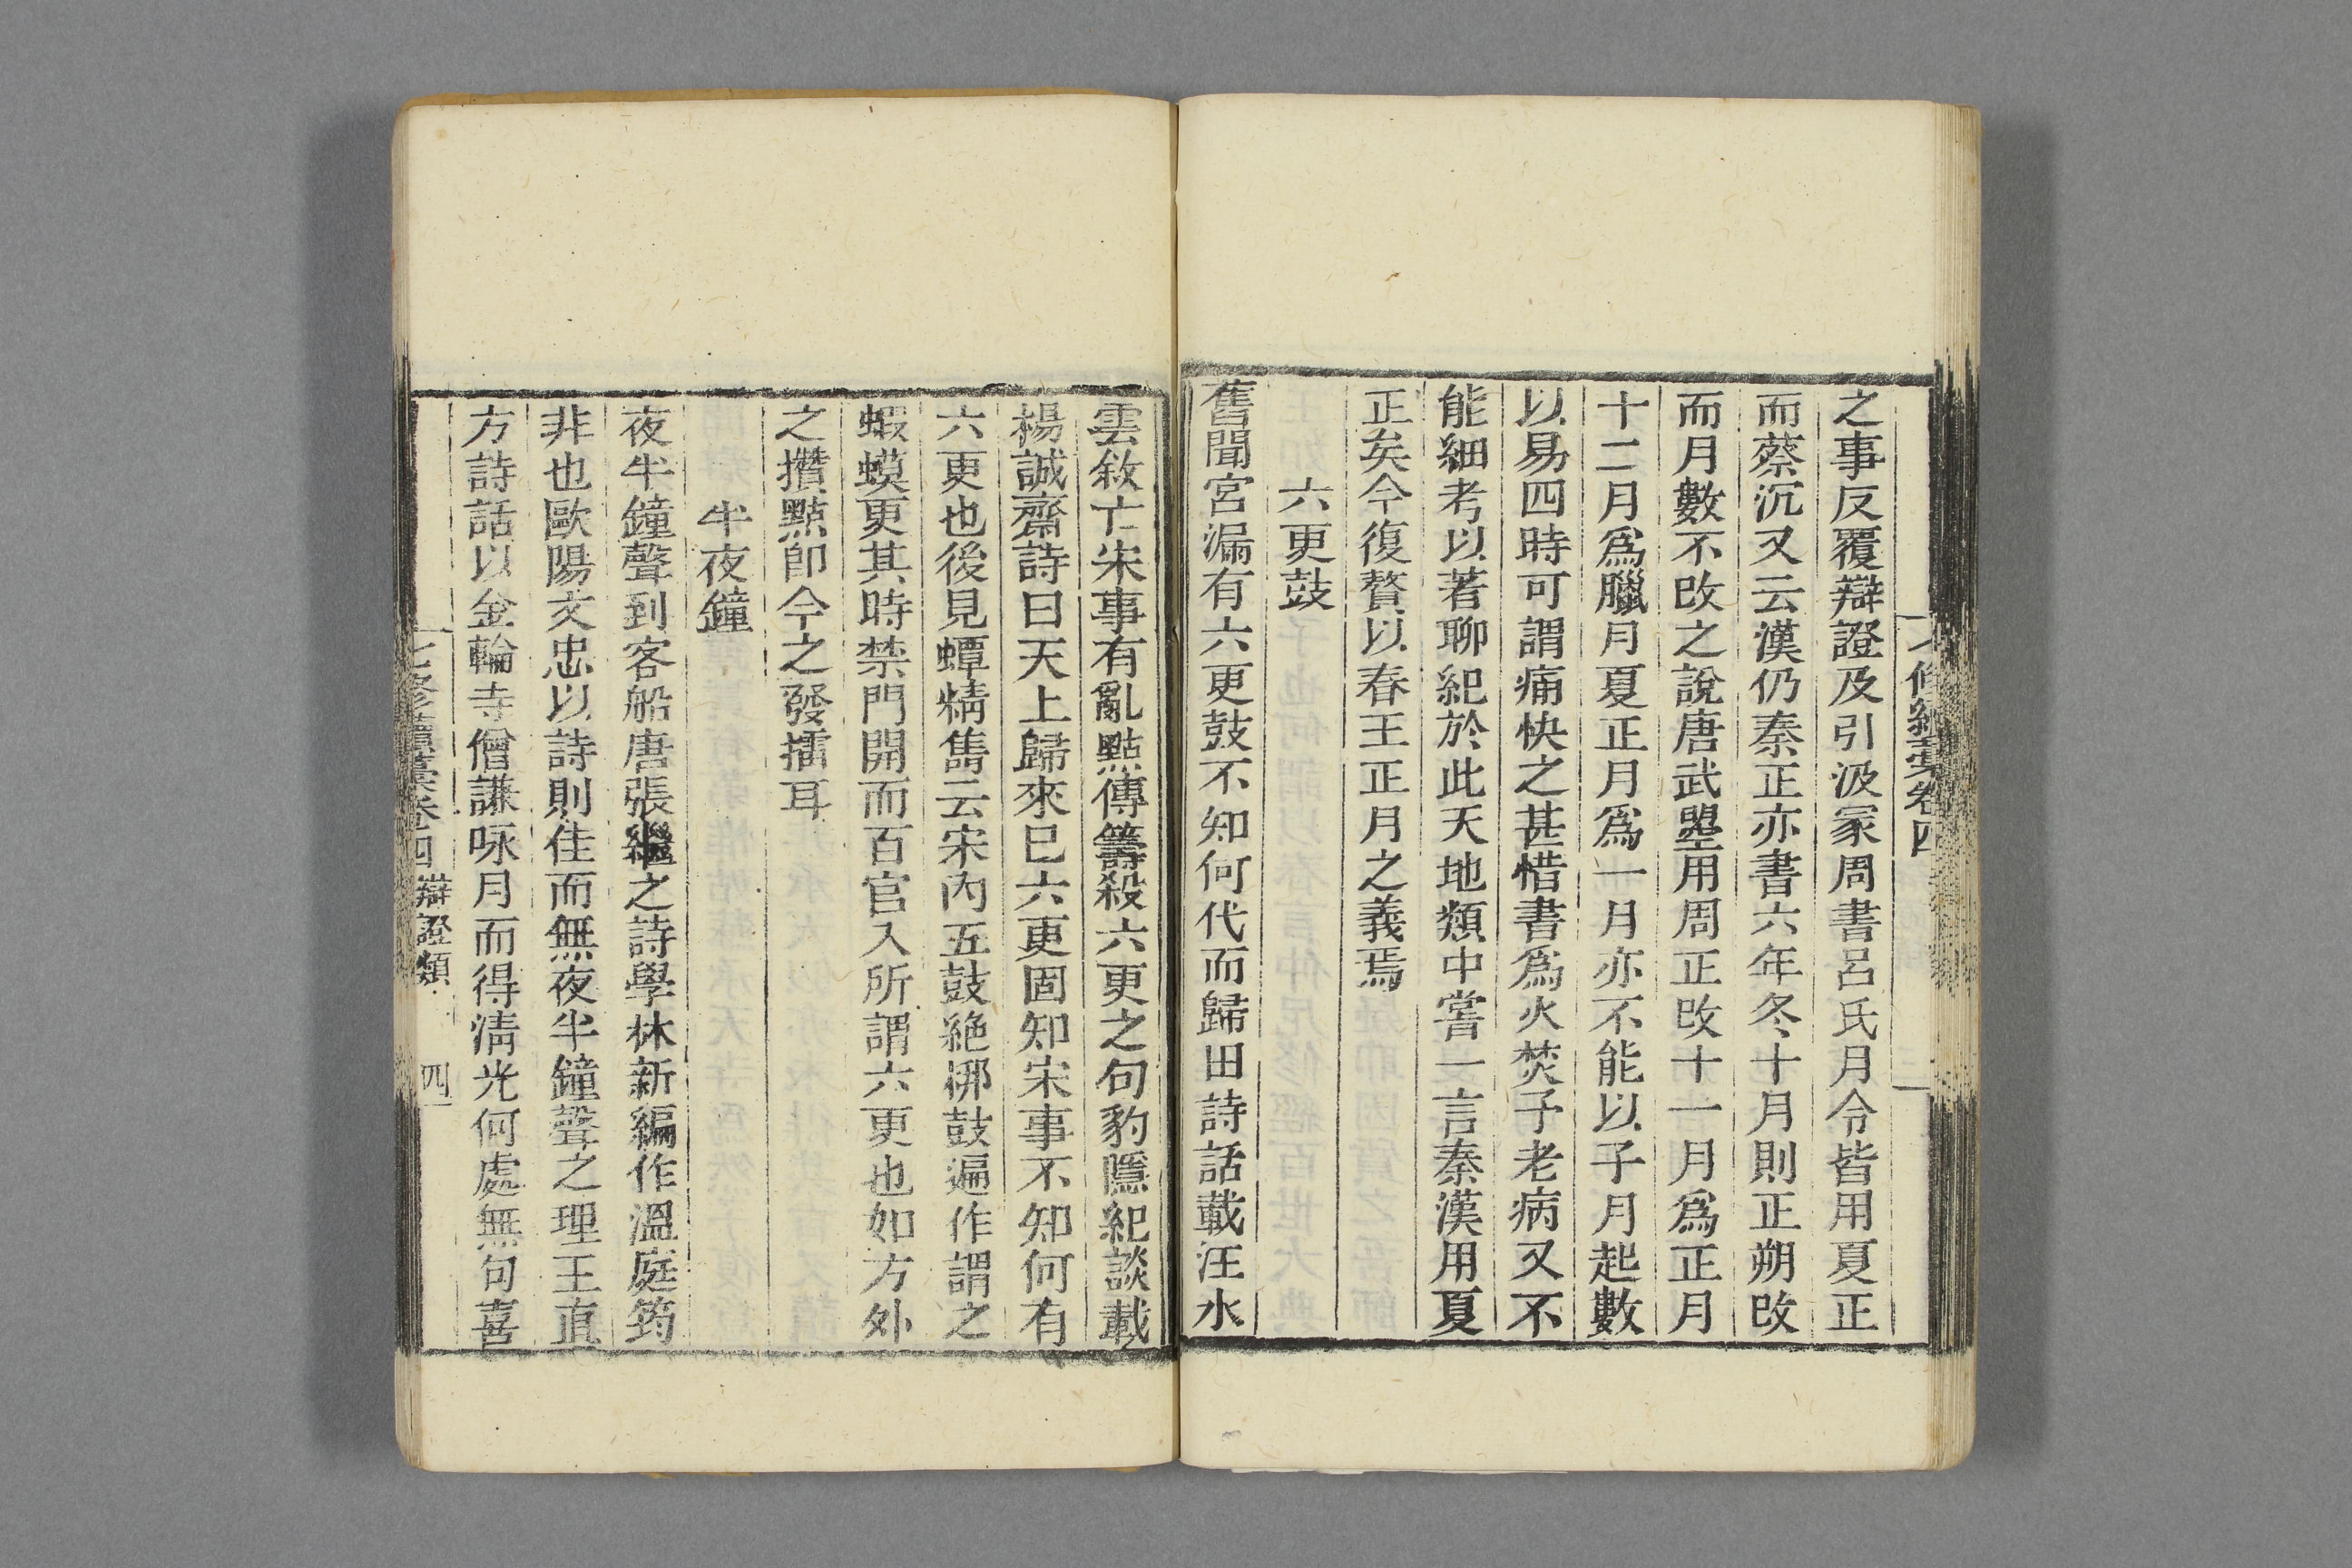 之事反覆辯證及引汲冡周書呂氏月令皆用夏正
而蔡沉又云漢仍秦正亦書六年冬十月則正朔改
而月數不改之說唐武曌用周正改十一月爲正月
十二月爲臘月夏正月爲一月亦不能以子月起數
以易四時可謂痛快之甚惜書爲火焚子老病又不
能細考以著聊紀於此天地類中嘗一言秦漢用夏
正矣今復贅以春王正月之義焉
六更鼓
舊聞宮漏有六更鼓不知何代而歸田詩話載汪水
雲敘亡宋事有亂點傳籌殺六更之句豹隱紀談載
楊誠齋詩曰天上歸來巳六更固知宋事不知何有
六更也後見蟫精雋云宋内五鼓絶梆鼓遍作謂之
蝦蟆更其時禁門開而百官入所謂六更也如方外
之攢點卽今之發擂耳
半夜鐘
夜半鐘聲到客船唐張繼之詩學林新編作溫庭筠
非也歐陽文忠以詩則佳而無夜半鐘聲之理王直
方詩話以金輪寺僧謙咏月而得淸光何處無句喜
七修續藁卷四 辯證類 四